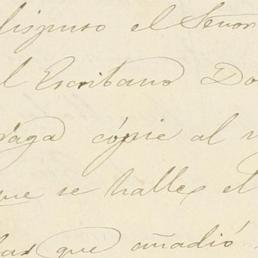 dispuso el Señor
el Escribano Do
raga cópie al
que se halle el
las que añadió